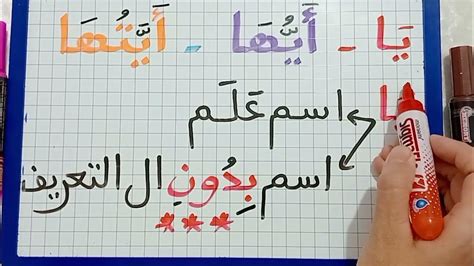 يَا - أَيُّهَا - أَيَّتُهَا
اسم عَلَم
اسم بِدُونِ ال التعريف